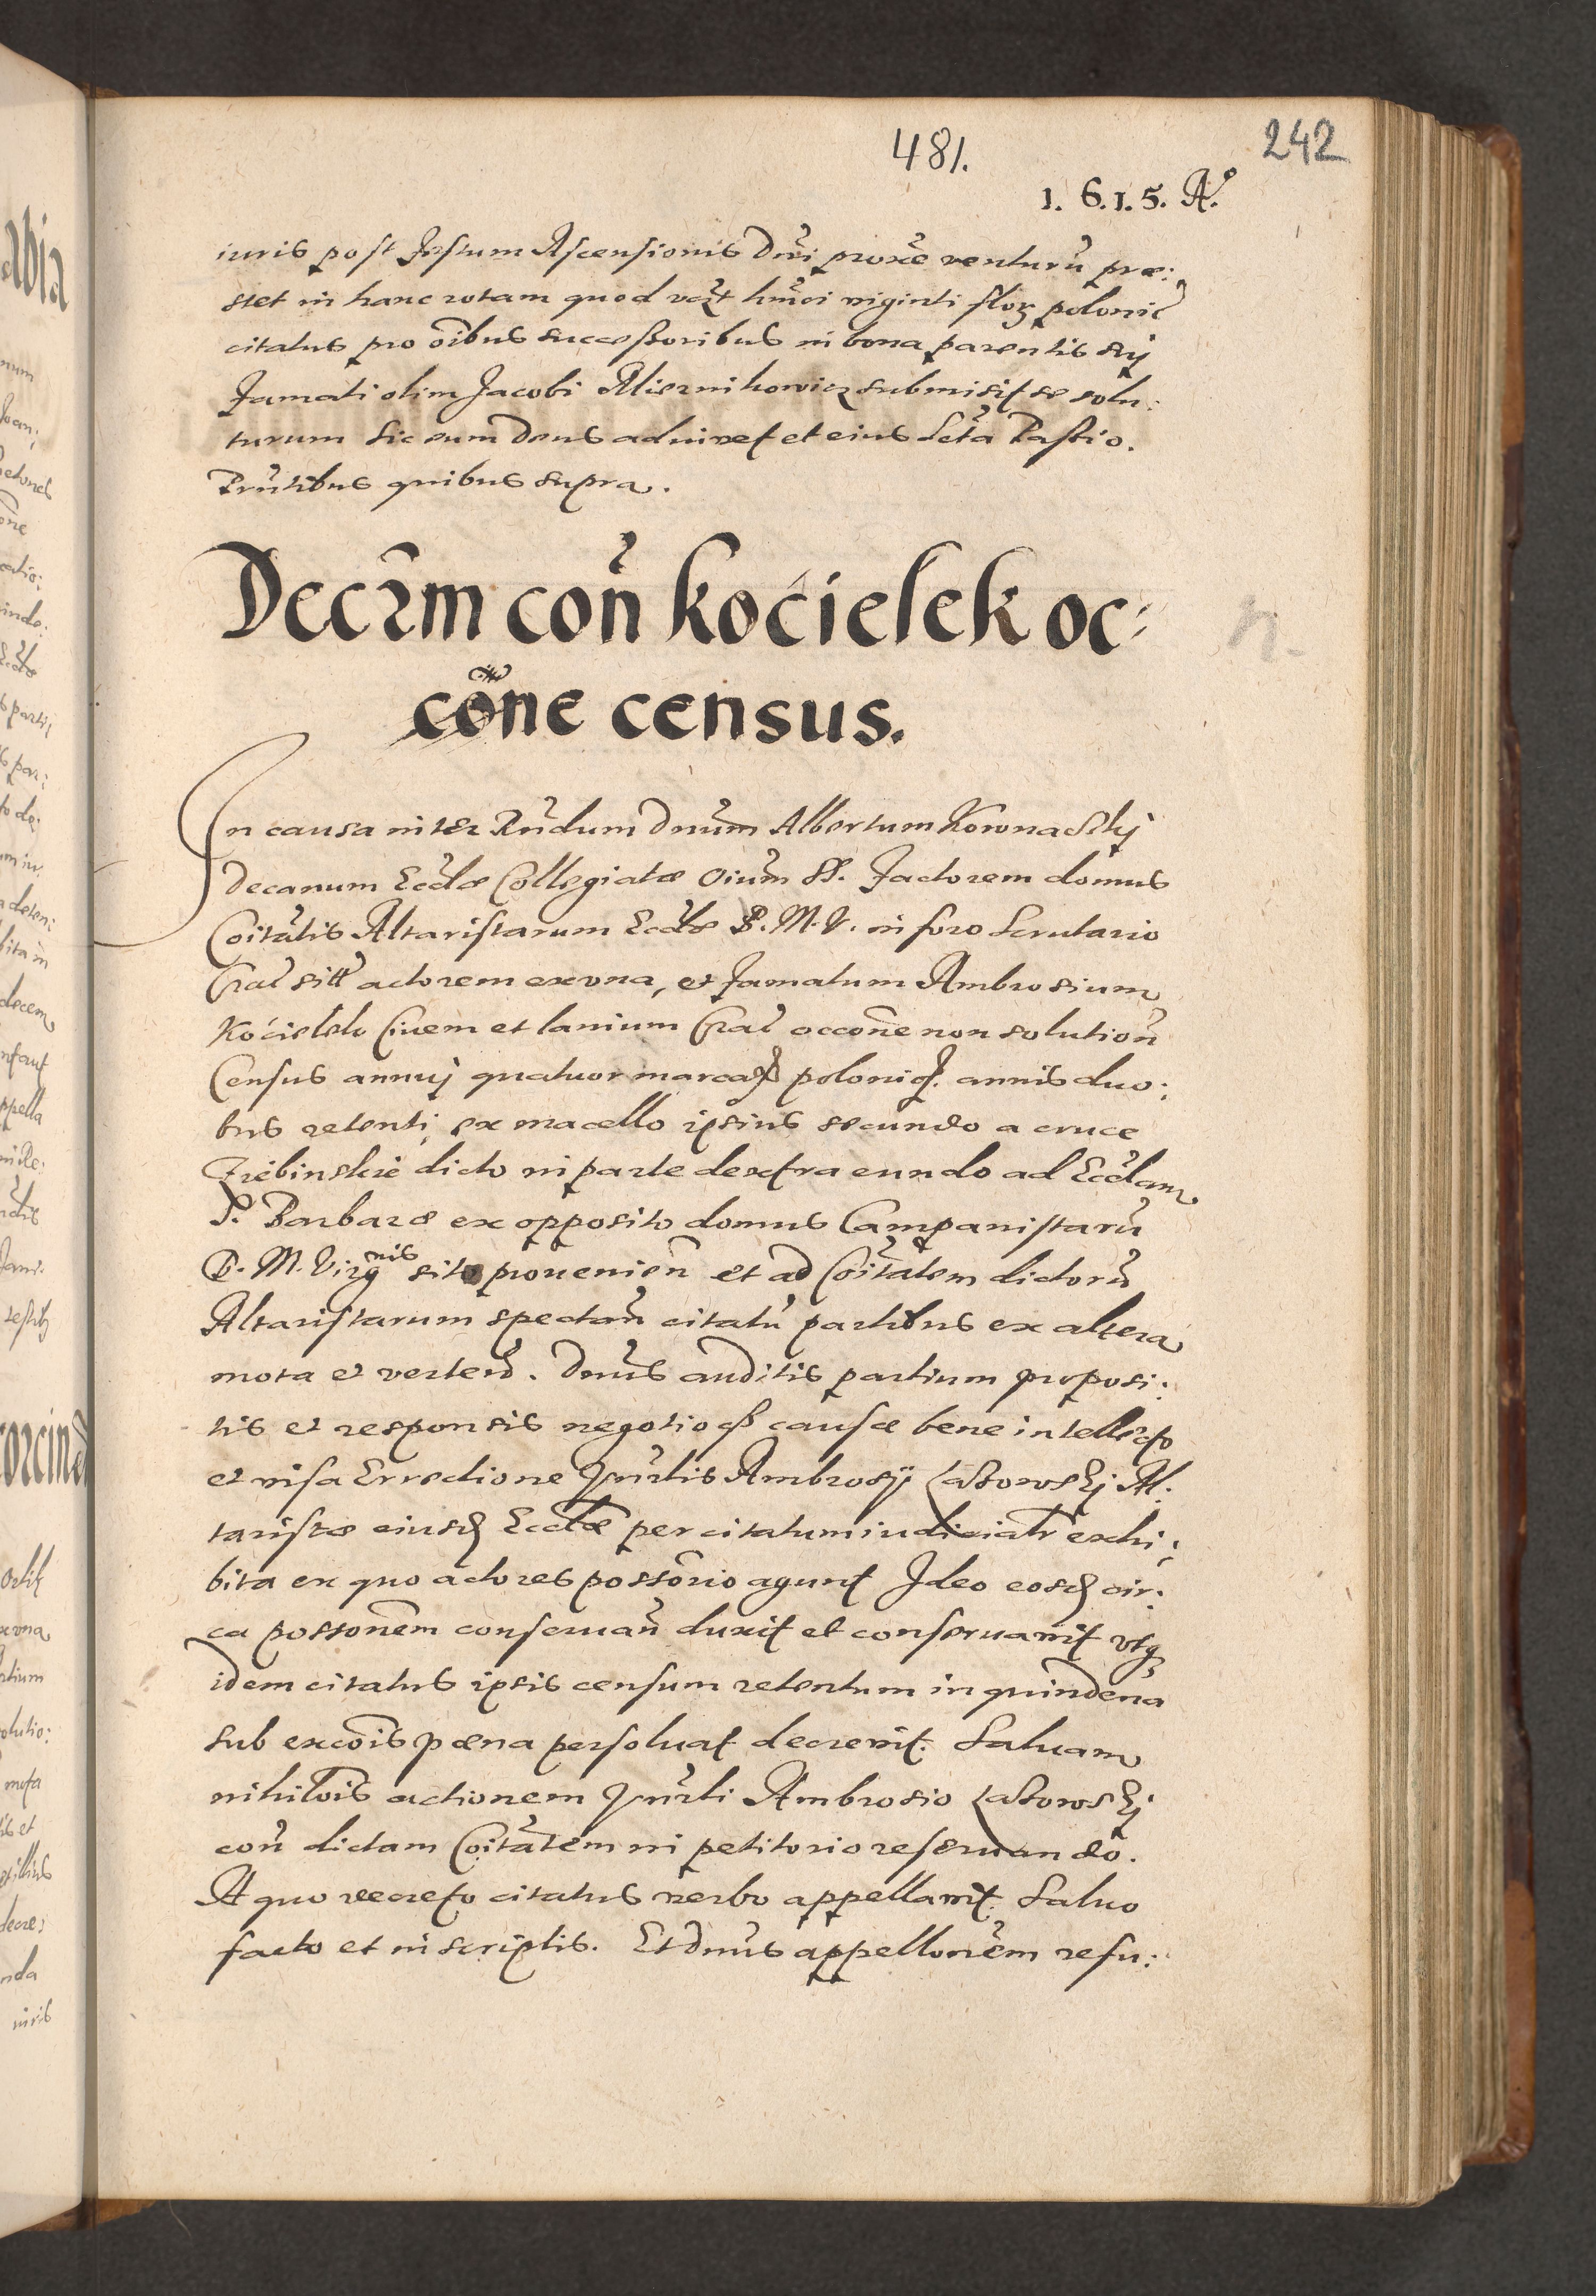 481.
242
1. 6. 1. 5. A.º
iuris post Festum Ascensionis Dni proxe venturũ præ:
stet in hanc rotam quod hmoi viginti flor polonic
citatus pro oibus successoribus in bona parentis sui
Famati olim Jacobi submisit se solu:
turum Sic eum Deus adiuvet et eius Scta Passio.
Prntibus quibus supra.
Decrm con Kocielek oc:
cone census.
In causa inter Rndum Dnum Albertum
Decanum Ecclæ Collegiatæ oium SS. Factorem domus
Coitatis Altaristarum Ecclæ B. M. V. in foro Scrutario
Crac sitt actorem ex una, et Famatum Ambrosium
Kocielek Civem et lanium Crac occone non solution
Census annuj quatuor marcar polonic. annis duo:
bus retenti, ex macello ipsius secundo a cruce
Trebinskie dicto in parte dextra eundo ad Ecclam
S. Barbaræ ex opposito domus Campanistarũ
B. M. Virgnis sito provenien et ad Coitatem dictorũ
Altaristarum spectan citatũ partibus ex altera
mota et verten. Dnus auditis partium proposi:
tis et responsis negotioq causæ bene intellecto
et visa Erectione Vnrlis Ambrosij Al:
taristæ eiusd Ecclæ per citatum iudicialr exhi:
bita ex quo actores possorio agunt Ideo eosd cir:
ca possonem conservan duxit et conservavit utq
idem citatus ipsis censum retentum in quindena
sub excois pæna persolvat decrevit. Salvam
nihilois actionem Vnrli Ambrosio
con dictam Coitatem in petitorio reservando.
A quo decreto citatus verbo appellavit. Salvo
facto et in scriptis. Et Dnus appellonem refu: